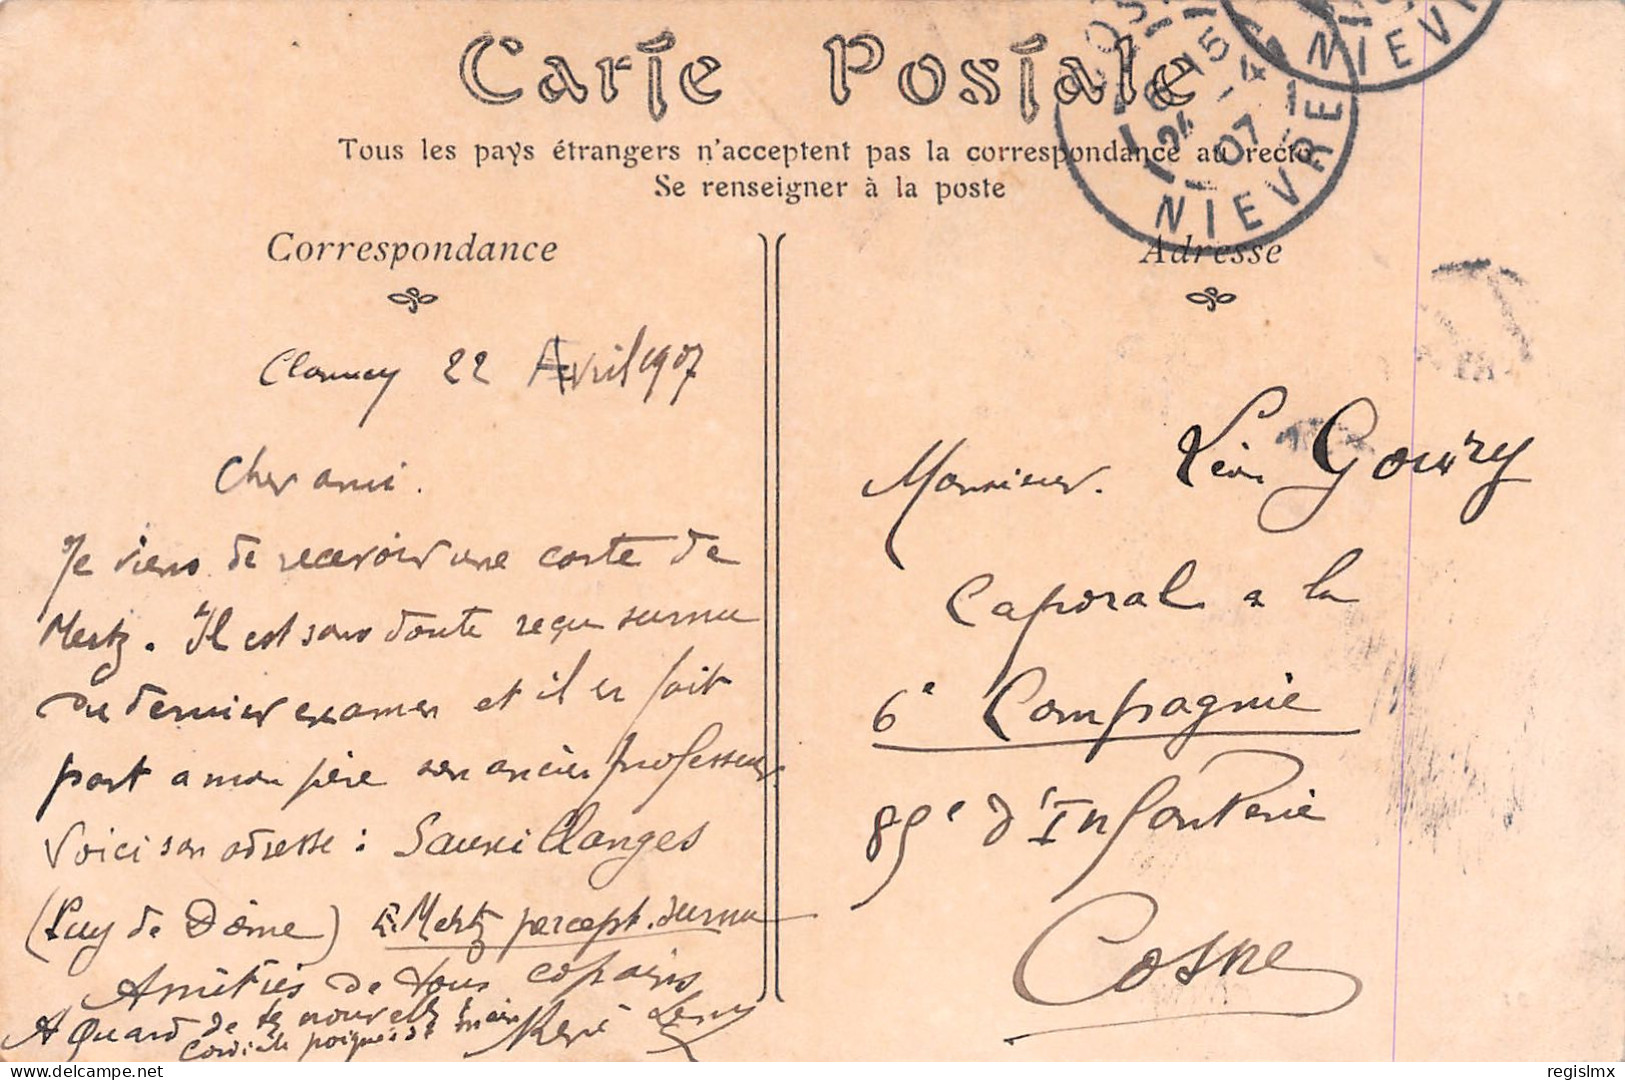 Carte Postale
Tous les pays étrangers n'acceptent pas la correspondance au recto
Se renseigner à la poste
Correspondance
Clamecy 22 Avril 1907
Cher ami.
Je viens de recevoir une carte de
Mertz. Il est sans doute reçu surnu
du dernier examen et il en fait
part a mon père son ancien professeur.
Voici son adresse : Sauxillanges
(Puy de Dôme) Mertz percept. surnu
Amitiés de tous copains
A Quand de tes nouvelles
Cordiale poignée de main René
Adresse
Monsieur. Léon Goury
Caporal a la
6e Compagnie
85e d'Infanterie
Cosne
15
24 - 4
07
NIEVRE
NIEVR
delcampe.net
regislmx